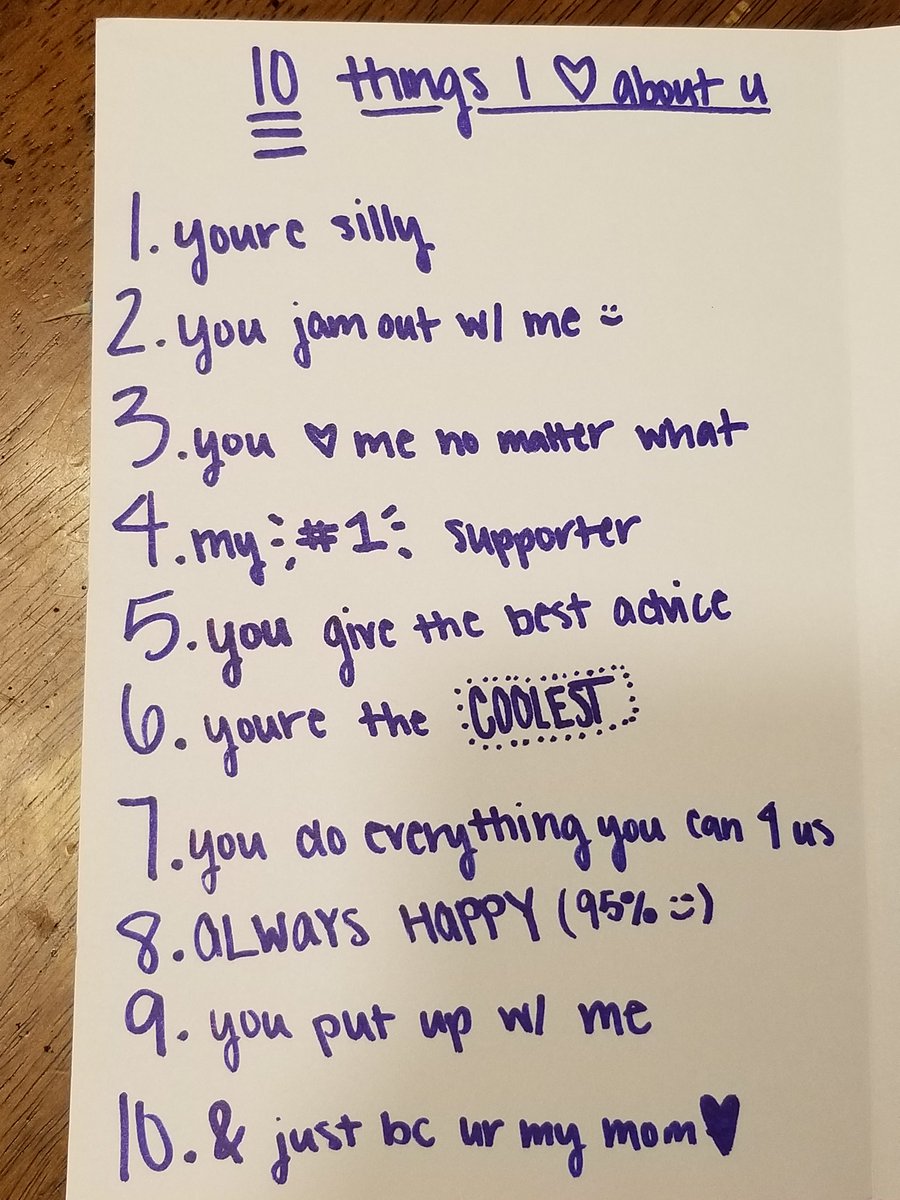 10 things I ♡ about u
1. youre silly
2. you jam out w/ me :)
3. you ♡ me no matter what
4. my #1 supporter
5. you give the best advice
6. youre the COOLEST
7. you do everything you can 4 us
8. ALWAYS HAPPY (95% :))
9. you put up w/ me
10. & just bc ur my mom ♥